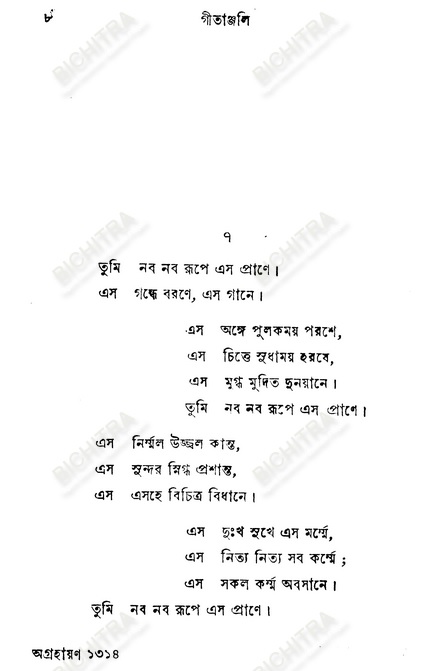 ৮ গীতাঞ্জলি
৭
তুমি নব নব রূপে এস প্রাণে।
এস গন্ধে বরণে, এস গানে।
এস অঙ্গে পুলকময় পরশে,
এস চিত্তে সুধাময় হরষে,
এস মুগ্ধ মুদিত দুনয়ানে।
তুমি নব নব রূপে এস প্রাণে।
এস নির্ম্মল উজ্জ্বল কান্ত,
এস সুন্দর স্নিগ্ধ প্রশান্ত,
এস এসহে বিচিত্র বিধানে।
এস দুঃখ সুখে এস মর্ম্মে,
এস নিত্য নিত্য সব কর্ম্মে;
এস সকল কর্ম্ম অবসানে।
তুমি নব নব রূপে এস প্রাণে।
অগ্রহায়ণ ১৩১৪
BICHITRA
BICHITRA
BICHITRA
BICHITRA
BICHITRA
BICHITRA
BICHITRA
BICHITRA